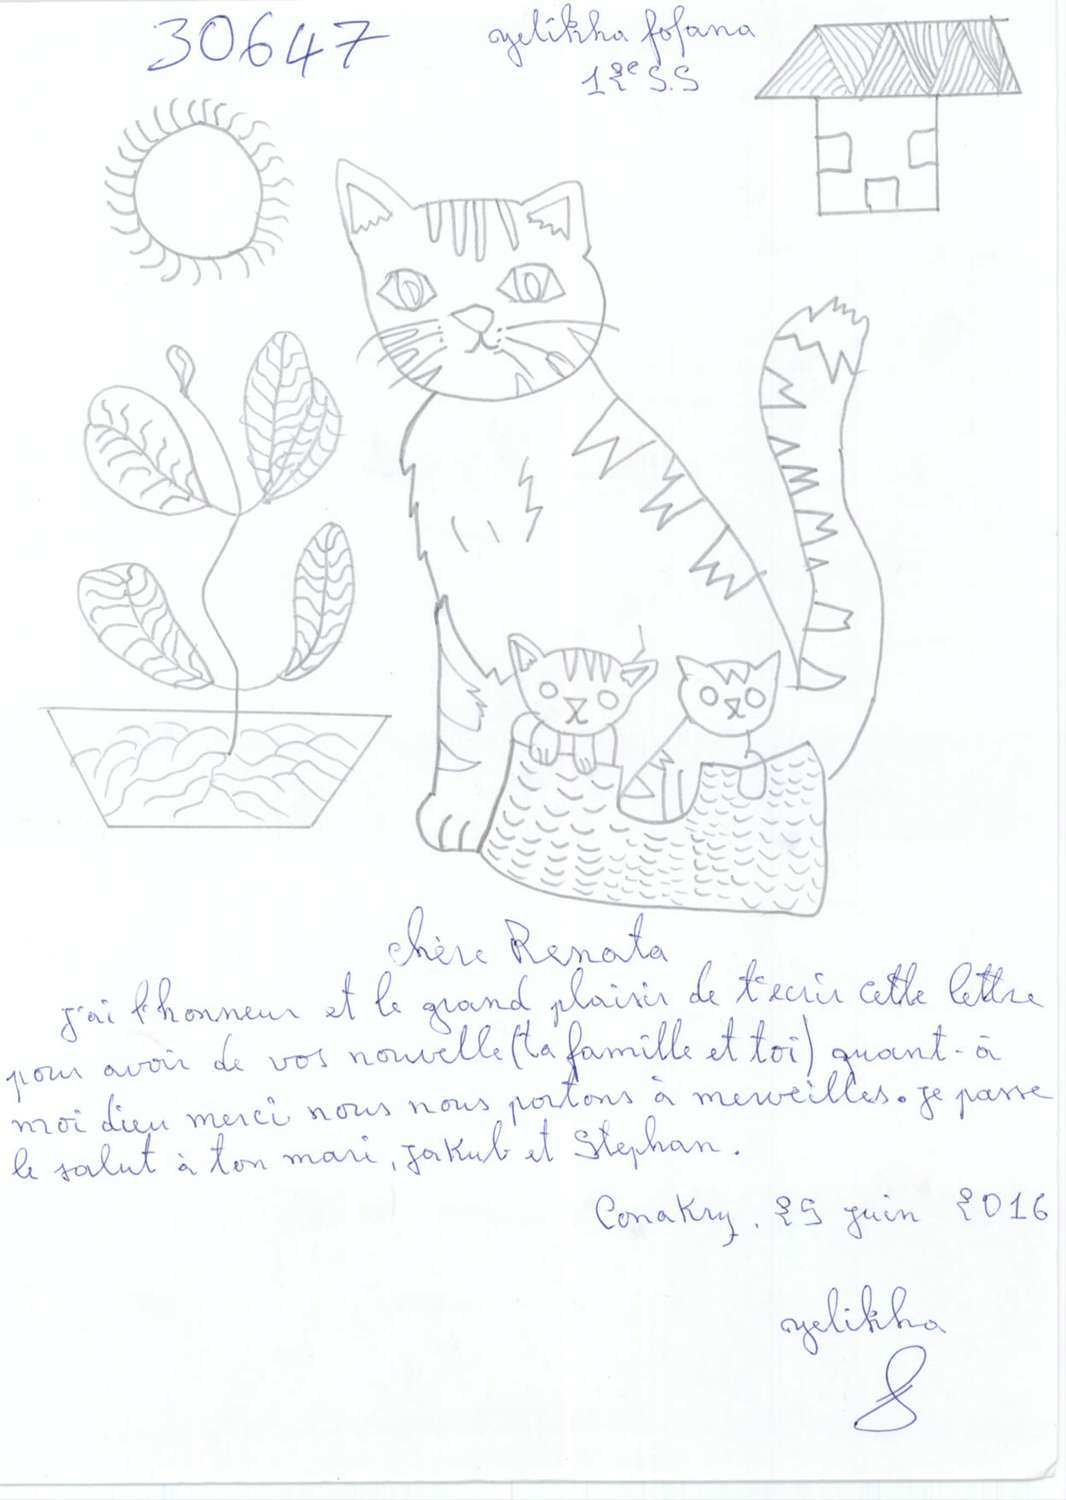 30647
yelikha fofana
12e S.S
chère Renata
j'ai l'honneur et le grand plaisir de t'ecrir cette lettre
pour avoir de vos nouvelle (ta famille et toi) quant-à
moi dieu merci nous nous portons à merveilles. je passe
le salut à ton mari, jakub et Stephan.
Conakry. 25 juin 2016
yelikha